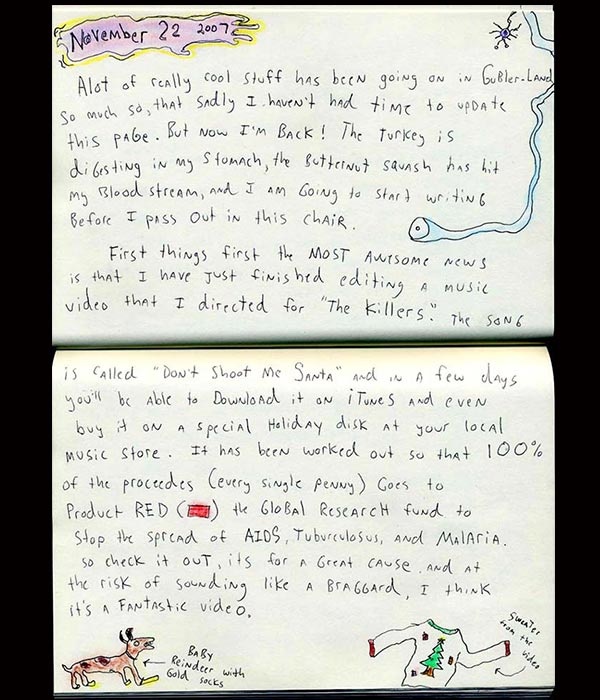 November 22 2007
Alot of really cool stuff has been going on in Gubler-Land
so much so, that sadly I haven't had time to update
this page. But now I'm Back! The turkey is
digesting in my stomach, the Butternut squash has hit
my Blood stream, and I am Going to start writing
Before I pass out in this chair.
First things first the MOST Awesome news
is that I have just finished editing a music
video that I directed for "The Killers." The song
is called "Don't Shoot Me Santa" and in a few days
you'll be able to Download it on iTunes and even
buy it on a special Holiday disk at your local
music store. It has been worked out so that 100%
of the proceedes (every single penny) Goes to
Product RED ( ) the Global Research fund to
stop the spread of AIDS, Tuburculosus, and Malaria.
so check it out, its for a Great cause. and at
the risk of sounding like a Braggard, I think
it's a Fantastic video.
Baby
Reindeer with
Gold socks
Sweater
from the video